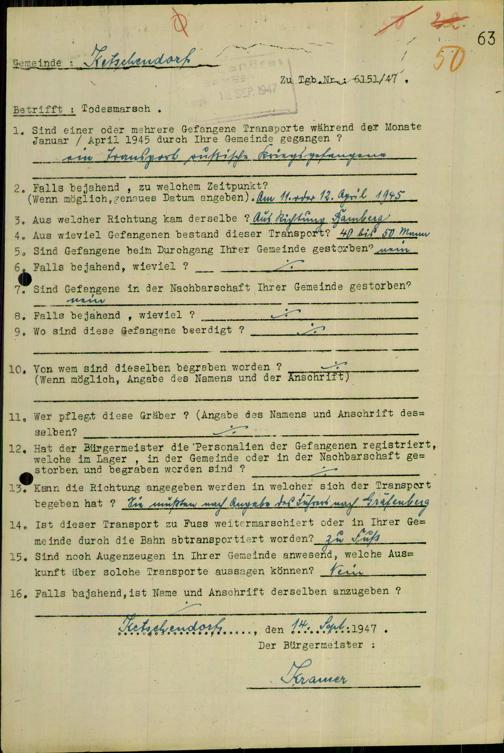 63
50
Gemeinde : Ketschendorf
Zu Tgb.Nr.: 6151/47 .
18. SEP. 1947
Betrifft : Todesmarsch .
1. Sind einer oder mehrere Gefangene Transporte während der Monate
Januar / April 1945 durch Ihre Gemeinde gegangen ?
ein Transport rußische Kriegsgefangene
2. Falls bejahend , zu welchem Zeitpunkt?
(Wenn möglich,genaues Datum angeben). Am 11. oder 12. April 1945
3. Aus welcher Richtung kam derselbe ? Aus Richtung Bamberg
4. Aus wieviel Gefangenen bestand dieser Transport? 40 bis 50 Mann
5. Sind Gefangene beim Durchgang Ihrer Gemeinde gestorben? nein
6. Falls bejahend, wieviel ? ./.
7. Sind Gefangene in der Nachbarschaft Ihrer Gemeinde gestorben?
nein
8. Falls bejahend , wieviel ? ./.
9. Wo sind diese Gefangene beerdigt ? ./.
10. Von wem sind dieselben begraben worden ? ./.
(Wenn möglich, Angabe des Namens und der Anschrift)
11. Wer pflegt diese Gräber ? (Angabe des Namens und Anschrift des=
selben? ./.
12. Hat der Bürgermeister die Personalien der Gefangenen registriert,
welche im Lager , in der Gemeinde oder in der Nachbarschaft ge=
storben und begraben worden sind ? ./.
13. Kann die Richtung angegeben werden in welcher sich der Transport
begeben hat ? Sie mußten nach Angabe des Führers nach Gräfenberg
14. Ist dieser Transport zu Fuss weitermarschiert oder in Ihrer Ge=
meinde durch die Bahn abtransportiert worden? zu Fuß
15. Sind noch Augenzeugen in Ihrer Gemeinde anwesend, welche Aus=
kunft über solche Transporte aussagen können? Nein
16. Falls bajahend,ist Name und Anschrift derselben anzugeben ?
./.
Ketschendorf , den 14. Sept. 1947 .
Der Bürgermeister :
Kramer